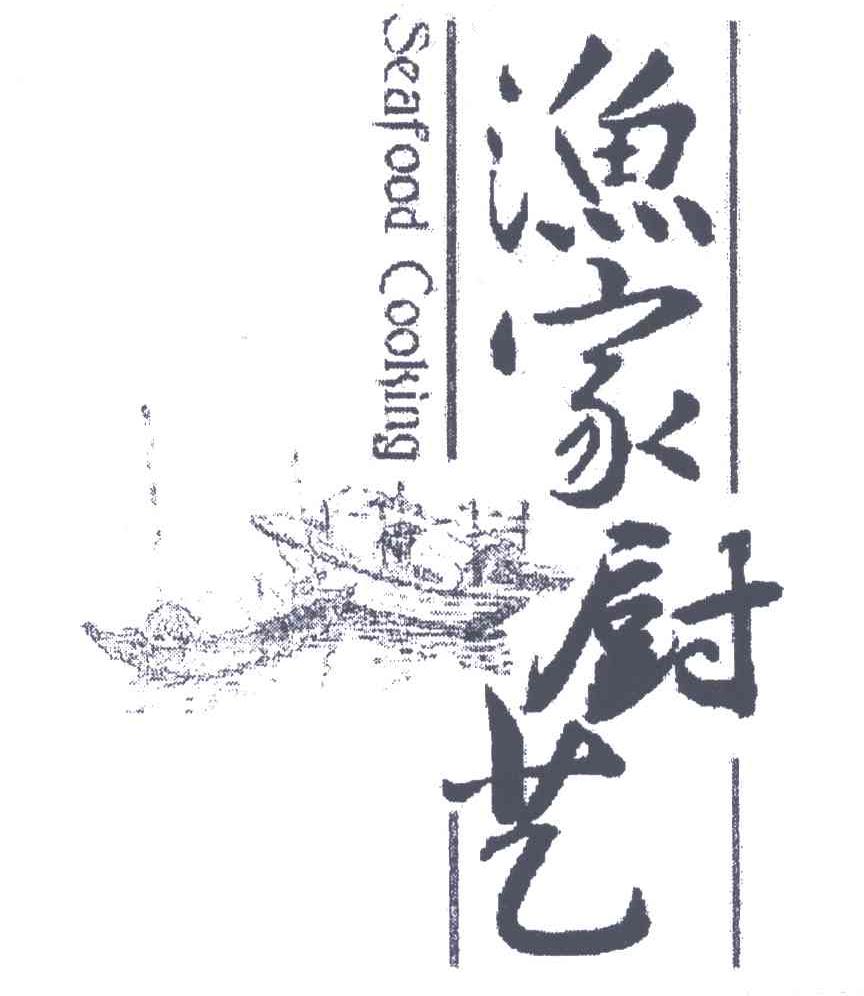 漁家厨艺
Seafood Cooking